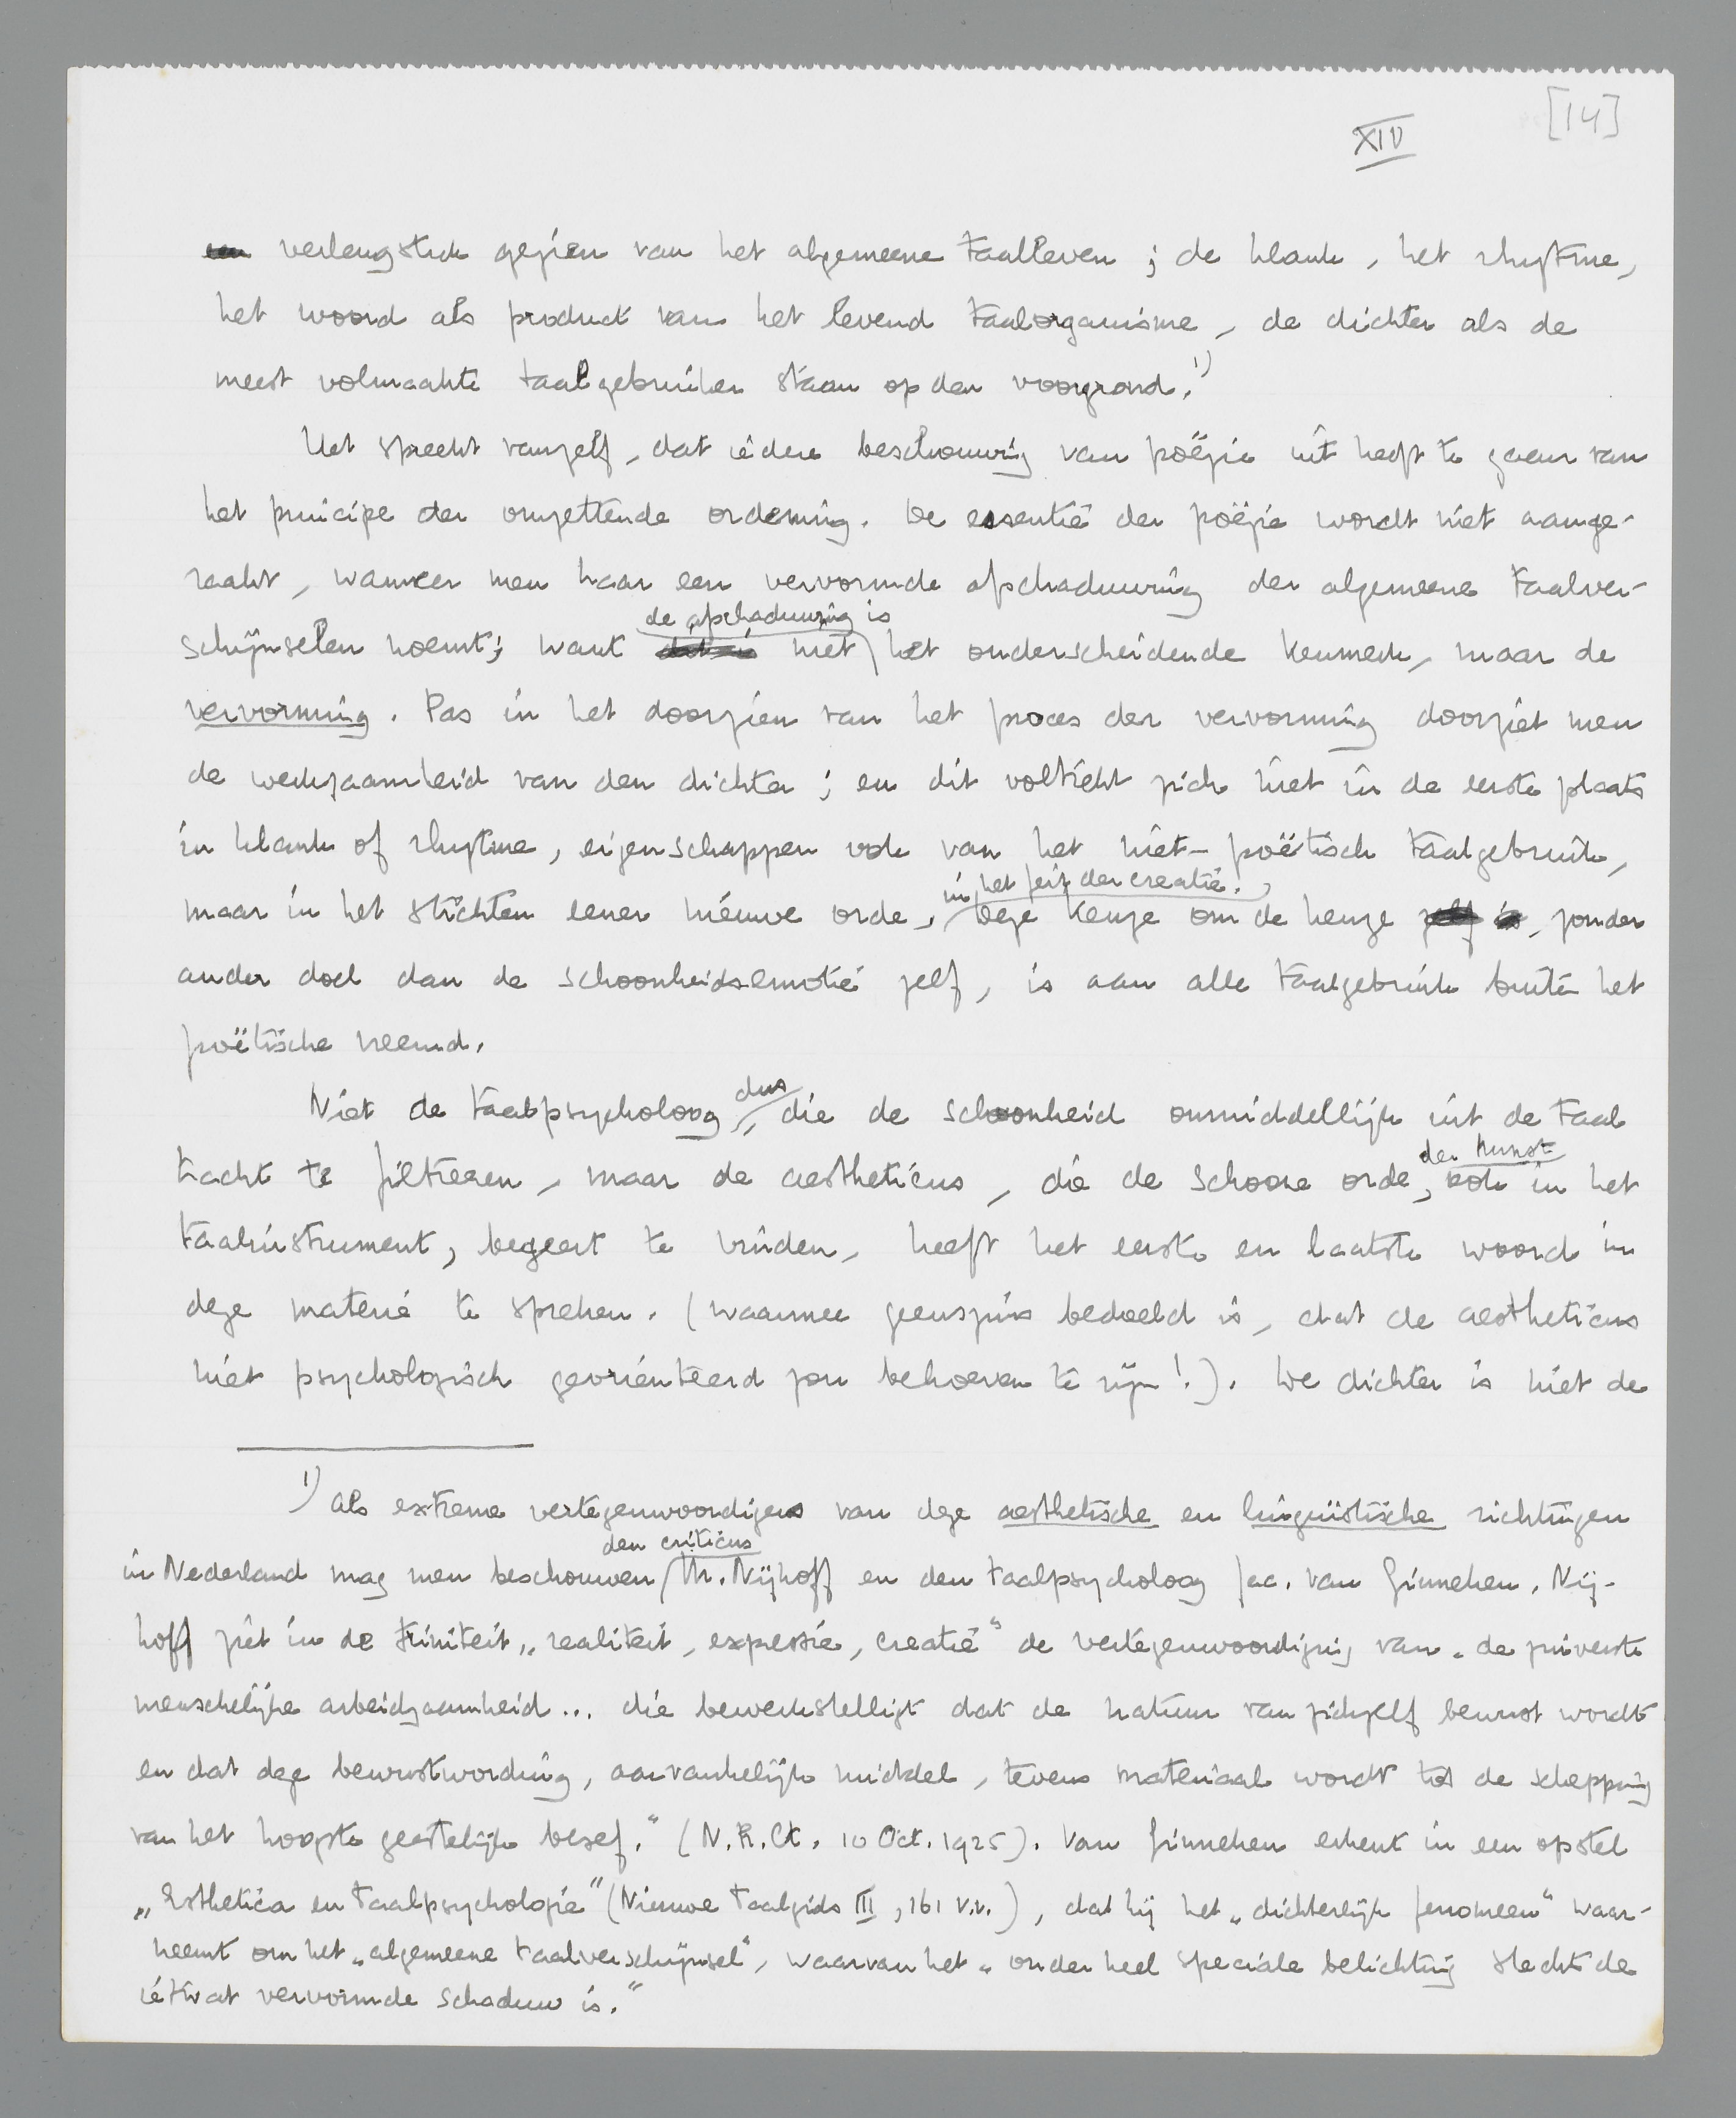 [14]
XIV
een verlengstuk gezien van het algemeene taalleven; de klank, het rhytme,
het woord als product van het levend taalorganisme, de dichter als de
meest volmaakte taalgebruiker staan op den voorgrond.¹⁾
Het spreekt vanzelf, dat iedere beschouwing van poëzie uit heeft te gaan van
het principe der omzettende ordening. De essentie der poëzie wordt niet aange-
raakt, wanneer men haar een vervormde afschaduwing der algemeene taalver-
de afschaduwing is
schijnselen noemt; want dit is niet het onderscheidende kenmerk, maar de
vervorming. Pas in het doorzien van het proces der vervorming doorziet men
de werkzaamheid van den dichter; en dit voltrekt zich niet in de eerste plaats
in klank of rhytme, eigenschappen ook van het niet-poëtisch taalgebruik,
in het feit der creatie.
maar in het stichten eener nieuwe orde, Deze keuze om de keuze zelf is, zonder
ander doel dan de schoonheidsemotie zelf, is aan alle taalgebruik buiten het
poëtische vreemd.
dus
Niet de taalpsycholoog, die de schoonheid onmiddellijk uit de taal
der kunst
tracht te filtreeren, maar de aestheticus, die de schoone orde, ook in het
taalinstrument, begeert te vinden, heeft het eerste en laatste woord in
deze materie te spreken. (waarmee geenszins bedoeld is, dat de aestheticus
niet psychologisch georiënteerd zou behoeven te zijn!). De dichter is niet de
¹⁾ Als extreme vertegenwoordigers van deze aesthetische en linguïstische richtingen
den criticus
in Nederland mag men beschouwen M. Nijhoff en den taalpsycholoog Jac. van Ginneken. Nij-
hoff ziet in de triniteit „realiteit, expressie, creatie" de vertegenwoordiging van „de zuiverste
menschelijke arbeidzaamheid... die bewerkstelligt dat de natuur van zichzelf bewust wordt
en dat deze bewustwording, aanvankelijk middel, tevens materiaal wordt tot de schepping
van het hoogste geestelijk besef." (N.R.Ct. 10 Oct. 1925). Van Ginneken erkent in een opstel
„Esthetica en taalpsychologie" (Nieuwe Taalgids III, 161 v.v.), dat hij het „dichterlijk fenomeen" waar-
neemt om het „algemeene taalverschijnsel", waarvan het „onder heel speciale belichting slechts de
ietwat vervormde schaduw is."